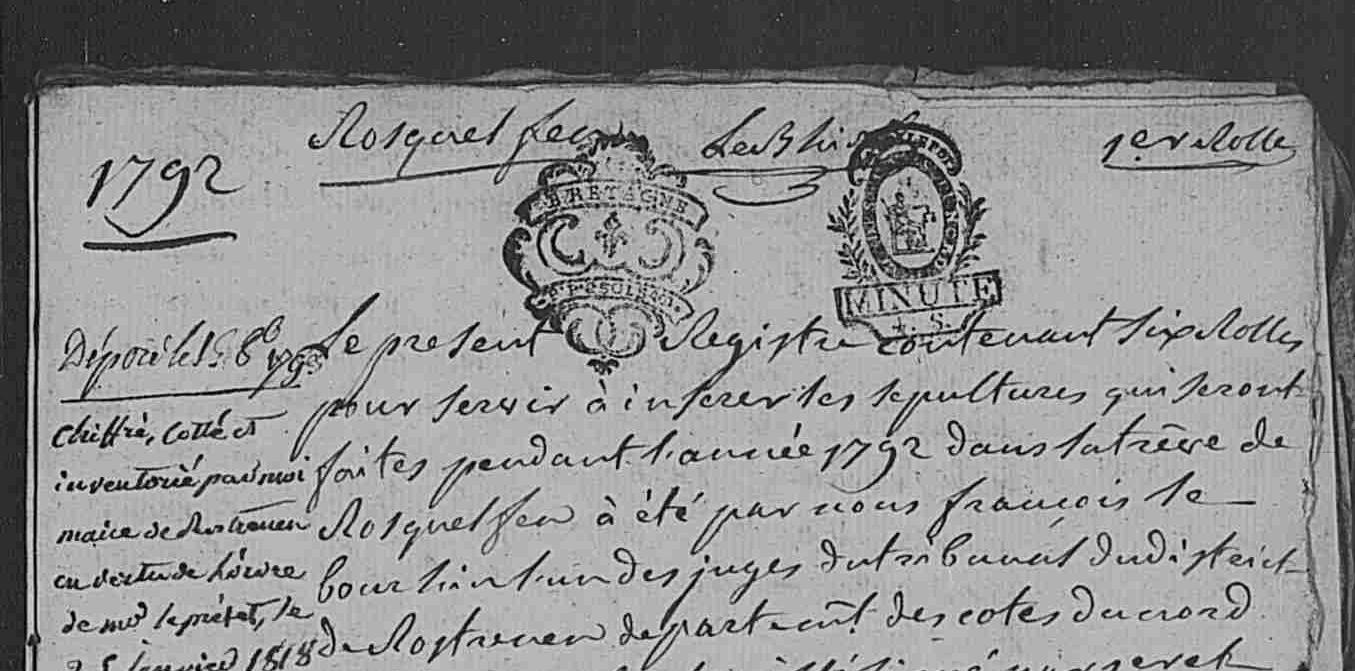 1792
Rosquelfen
1er Rolle
BRETAGNE
MINUTE
4. S.
Déposé le 15 8b 1793
chiffré, cotté et
inventorié par moi
maire de Rostrenen
en vertu de l'ordre
de mr le préfet, le
25 janvier 1818
le present Registre contenant six Rolles
pour servir à inserer les sepultures qui seront
faites pendant l'année 1792 dans la trève de
Rosquelfen à été par nous françois le
bour l'un des juges du tribunal du district
de Rostrenen departemt. des cotes du nord